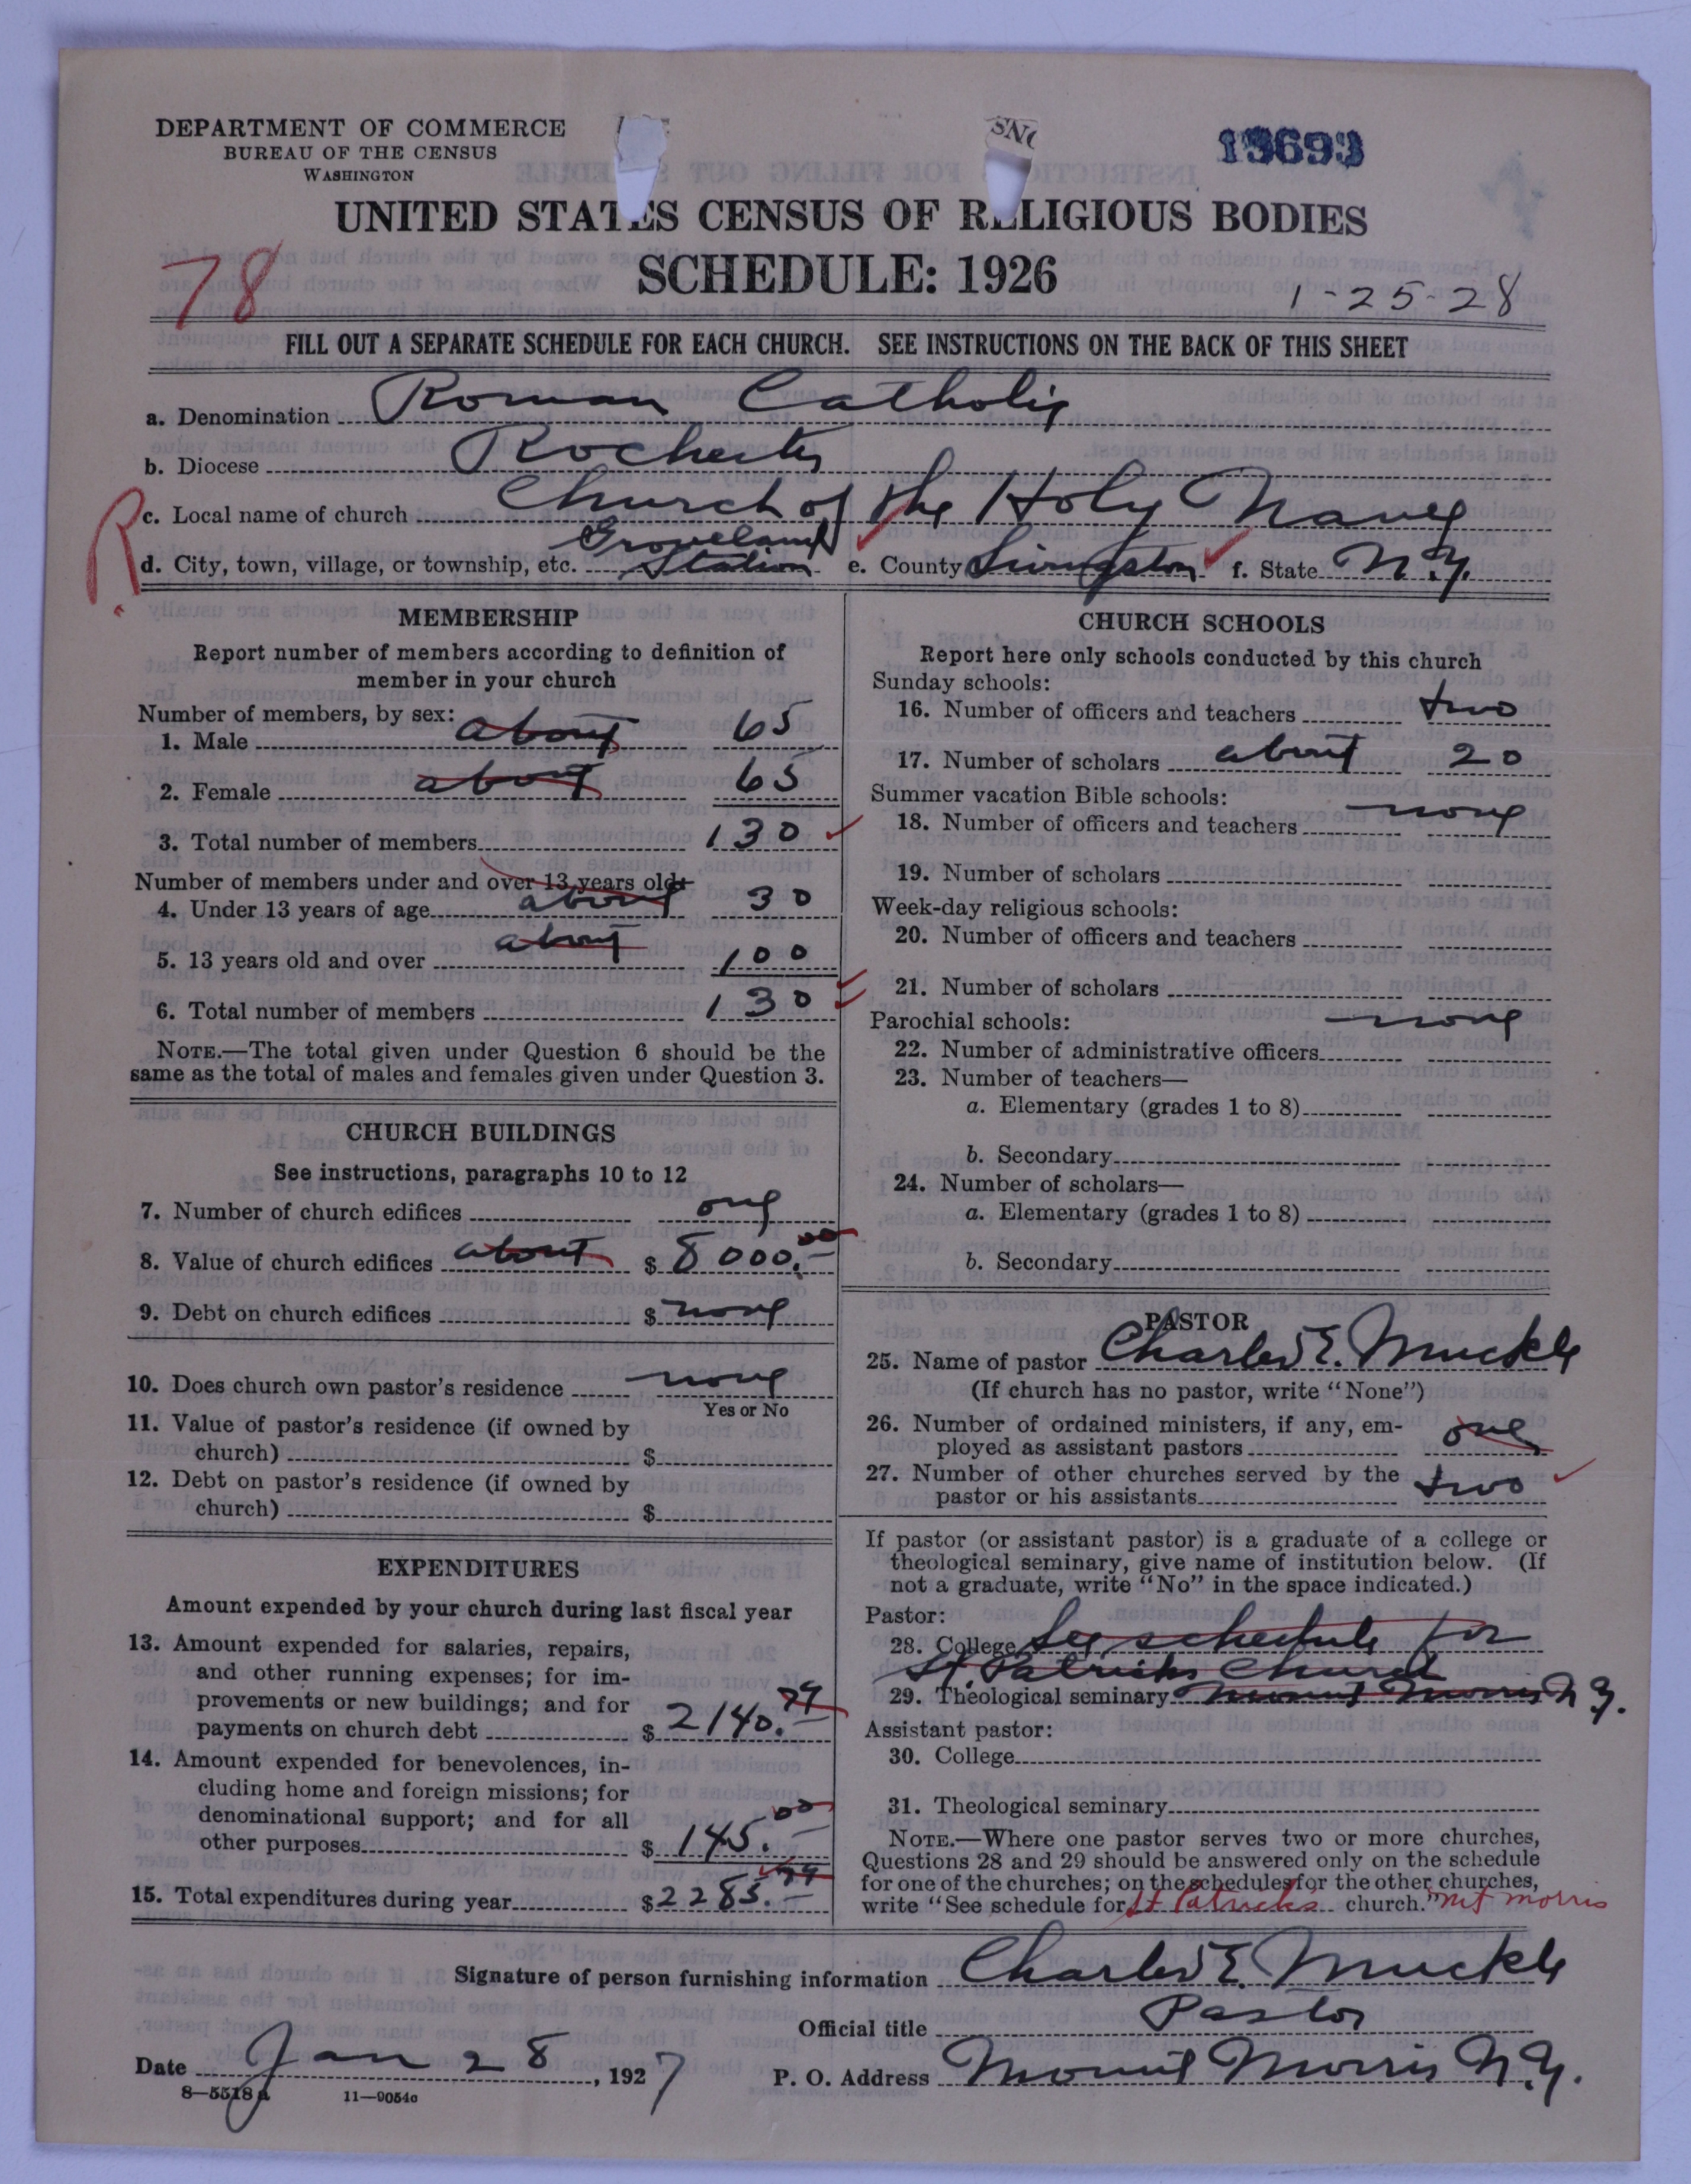 DEPARTMENT OF COMMERCE
BUREAU OF THE CENSUS
WASHINGTON
13693
UNITED STATES CENSUS OF RELIGIOUS BODIES
SCHEDULE: 1926
78
1-25-28
FILL OUT A SEPARATE SCHEDULE FOR EACH CHURCH. SEE INSTRUCTIONS ON THE BACK OF THIS SHEET
a. Denomination Roman Catholic
b. Diocese Rochester
R c. Local name of church Church of the Holy Name
d. City, town, village, or township, etc. Groveland Station e. County Livingston f. State N.Y.
MEMBERSHIP
Report number of members according to definition of
member in your church
Number of members, by sex:
1. Male about 65
2. Female about 65
3. Total number of members 130
Number of members under and over 13 years old:
4. Under 13 years of age about 30
5. 13 years old and over about 100
6. Total number of members 130
NOTE.—The total given under Question 6 should be the
same as the total of males and females given under Question 3.
CHURCH BUILDINGS
See instructions, paragraphs 10 to 12
7. Number of church edifices one
8. Value of church edifices about $ 8000.00
9. Debt on church edifices $ none
10. Does church own pastor's residence none
Yes or No
11. Value of pastor's residence (if owned by
church) $
12. Debt on pastor's residence (if owned by
church) $
EXPENDITURES
Amount expended by your church during last fiscal year
13. Amount expended for salaries, repairs,
and other running expenses; for im-
provements or new buildings; and for
payments on church debt $ 2140.79
14. Amount expended for benevolences, in-
cluding home and foreign missions; for
denominational support; and for all
other purposes $ 145.00
15. Total expenditures during year $ 2285.79
CHURCH SCHOOLS
Report here only schools conducted by this church
Sunday schools:
16. Number of officers and teachers two
17. Number of scholars about 20
Summer vacation Bible schools:
18. Number of officers and teachers none
19. Number of scholars
Week-day religious schools:
20. Number of officers and teachers
21. Number of scholars
Parochial schools: none
22. Number of administrative officers
23. Number of teachers—
a. Elementary (grades 1 to 8)
b. Secondary
24. Number of scholars—
a. Elementary (grades 1 to 8)
b. Secondary
PASTOR
25. Name of pastor Charles E. Muckle
(If church has no pastor, write "None")
26. Number of ordained ministers, if any, em-
ployed as assistant pastors one
27. Number of other churches served by the
pastor or his assistants two
If pastor (or assistant pastor) is a graduate of a college or
theological seminary, give name of institution below. (If
not a graduate, write "No" in the space indicated.)
Pastor:
28. College See schedule for
St. Patricks Church
29. Theological seminary Mount Morris N.Y.
Assistant pastor:
30. College
31. Theological seminary
NOTE.—Where one pastor serves two or more churches,
Questions 28 and 29 should be answered only on the schedule
for one of the churches; on the schedules for the other churches,
write "See schedule for St Patrick's church." Mt Morris
Signature of person furnishing information Charles E. Muckle
Official title Pastor
Date Jan 28, 1927 P. O. Address Mount Morris N.Y.
8—5518a 11—9054a